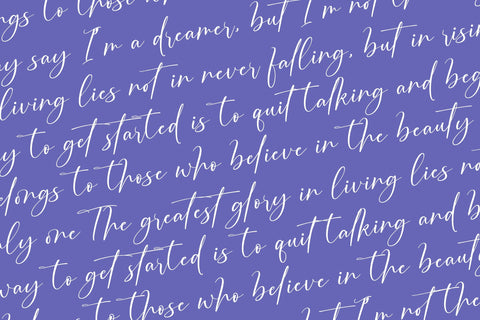 ngs to those who
ay say I'm a dreamer, but I'm not th
living lies not in never falling, but in risin
ay to get started is to quit talking and beg
elongs to those who believe in the beauty
nly one The greatest glory in living lies not
way to get started is to quit talking and b
to those who believe in the beauty
but I'm not the